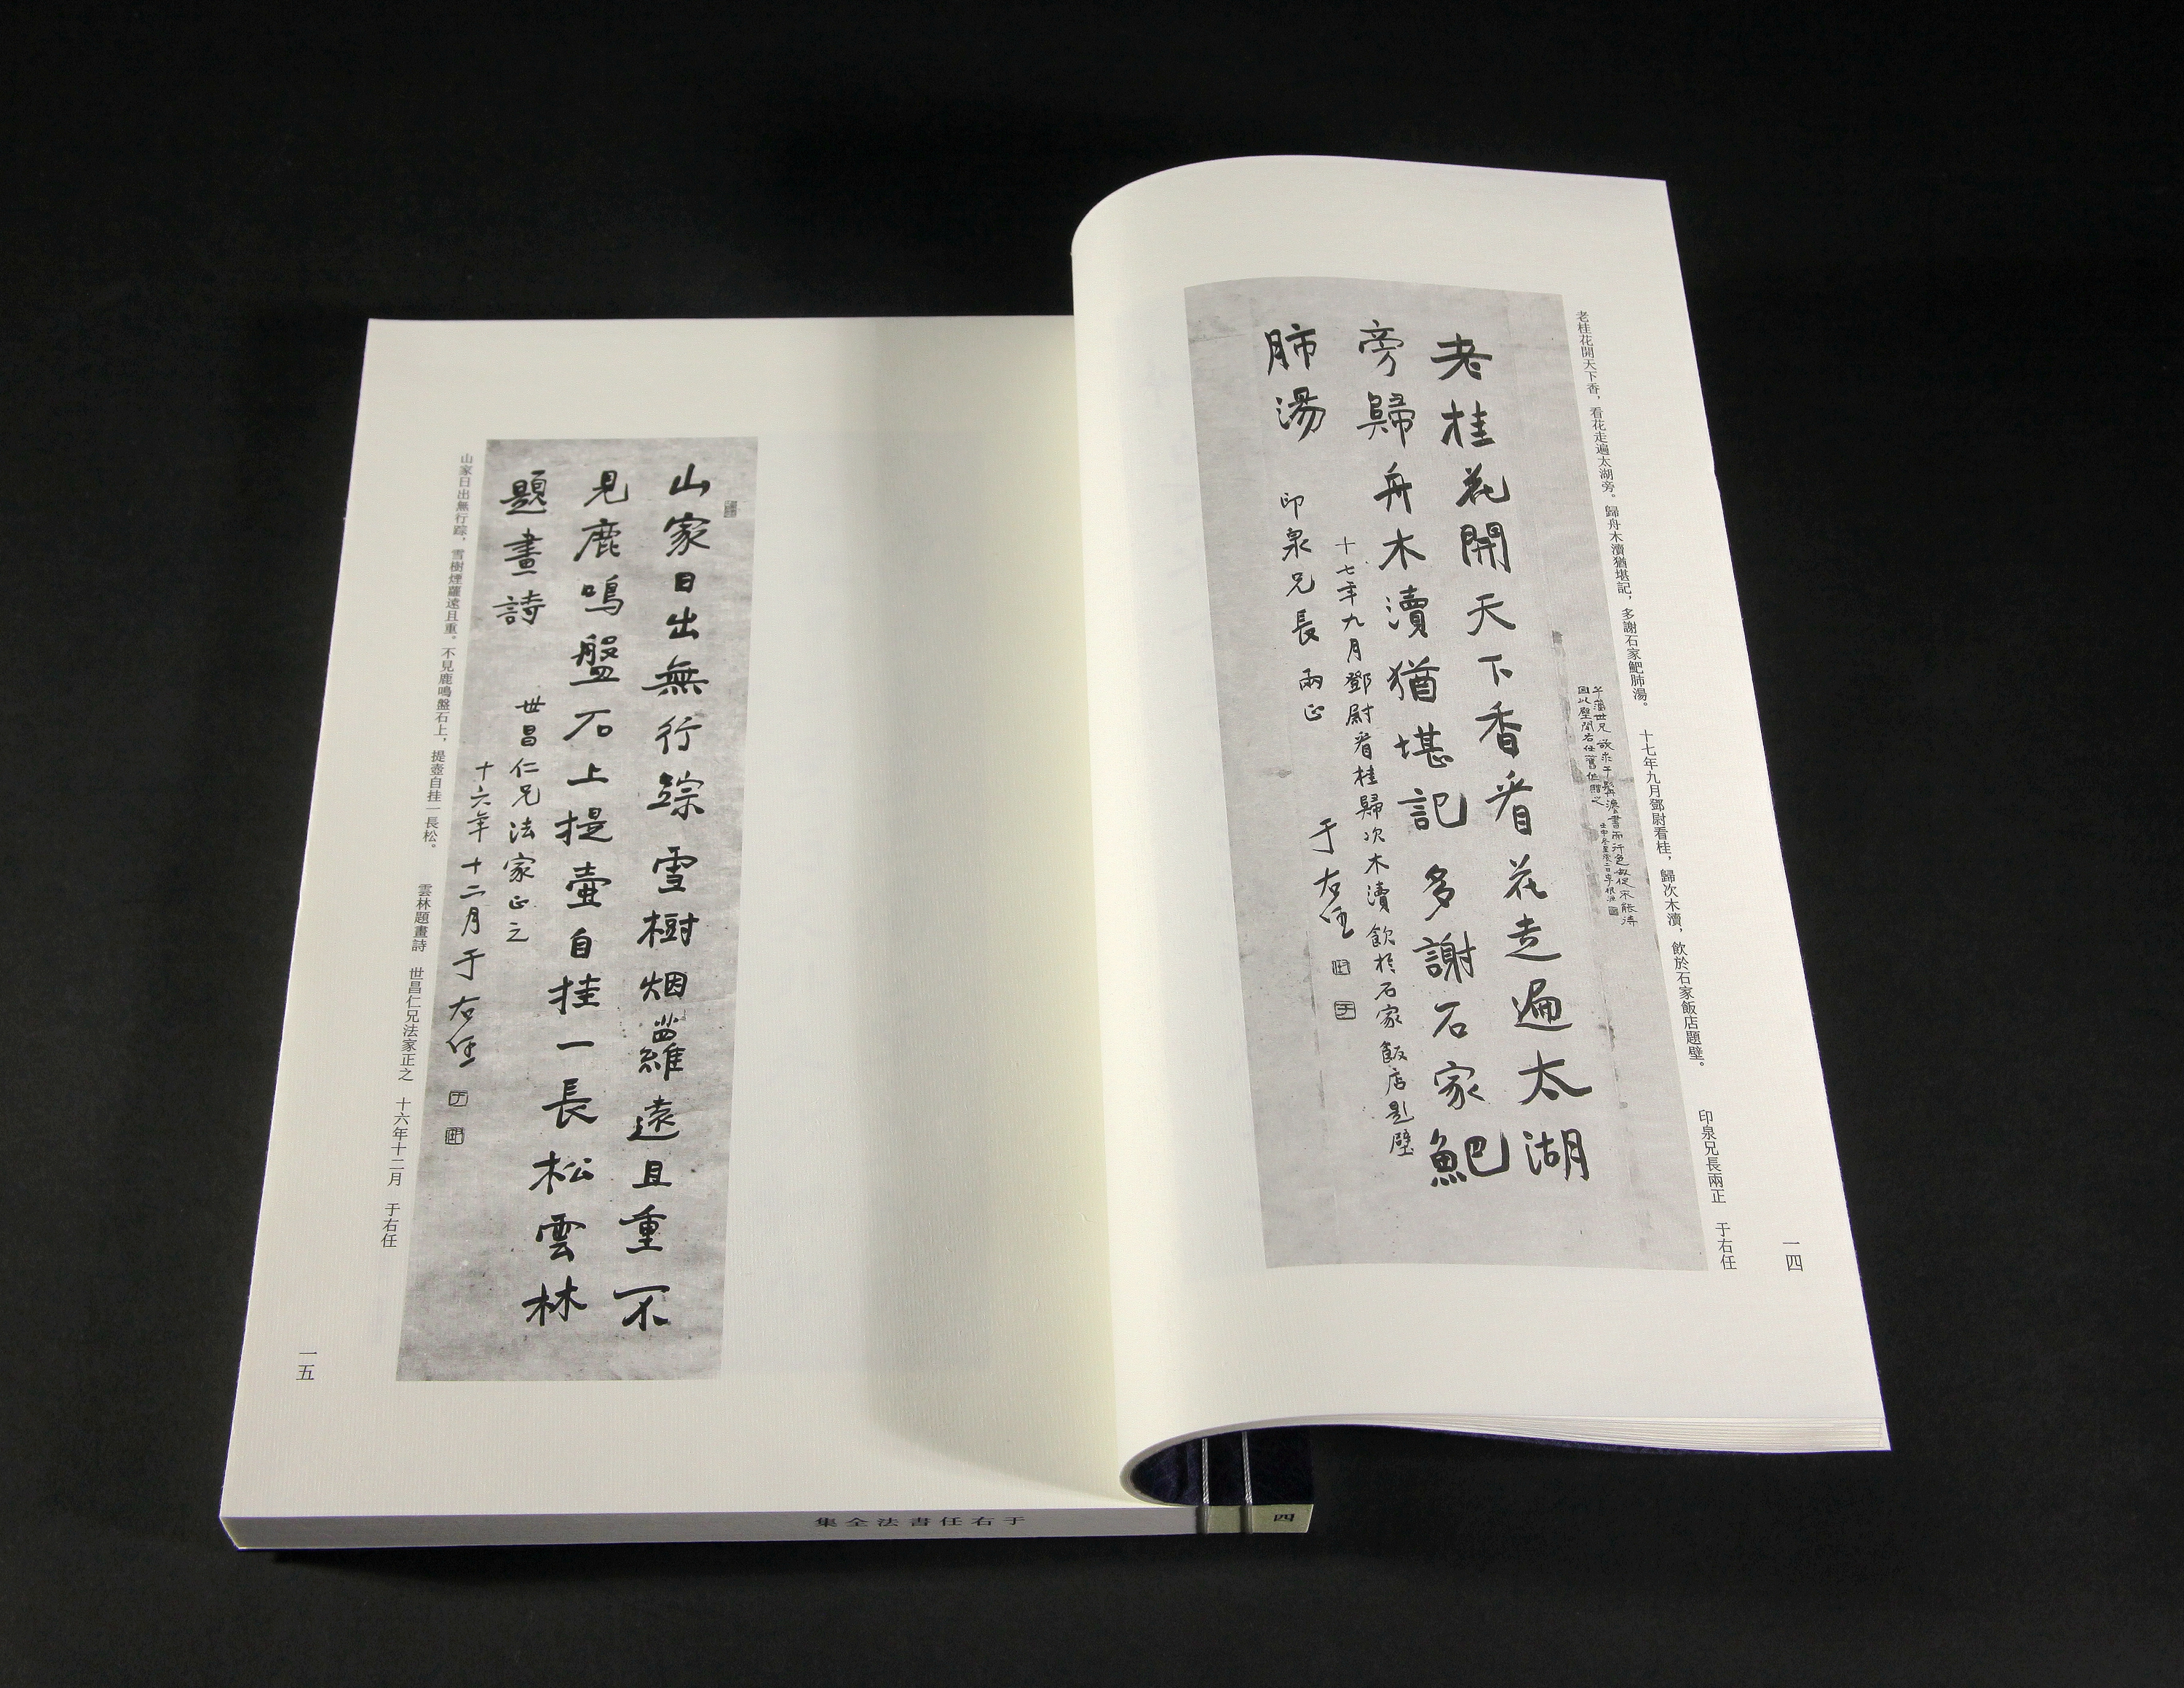 老桂花開天下香，看花走遍太湖旁。歸舟木瀆猶堪記，多謝石家鲃肺湯。
十七年九月鄧尉看桂，歸次木瀆，飲於石家飯店題壁。
印泉兄長兩正　于右任
一四
老桂花開天下香看花走遍太湖
旁歸舟木瀆猶堪記多謝石家鲃
肺湯
十七年九月鄧尉看桂歸次木瀆飲於石家飯店題壁
印泉兄長兩正
于右任
山家日出無行踪雪樹烟蘿遠且重不
見鹿鳴盤石上提壺自挂一長松雲林
題畫詩
世昌仁兄法家正之
十六年十二月于右任
山家日出無行踪，雪樹煙蘿遠且重。不見鹿鳴盤石上，提壺自挂一長松。
雲林題畫詩　世昌仁兄法家正之　十六年十二月　于右任
一五
于右任書法全集
四